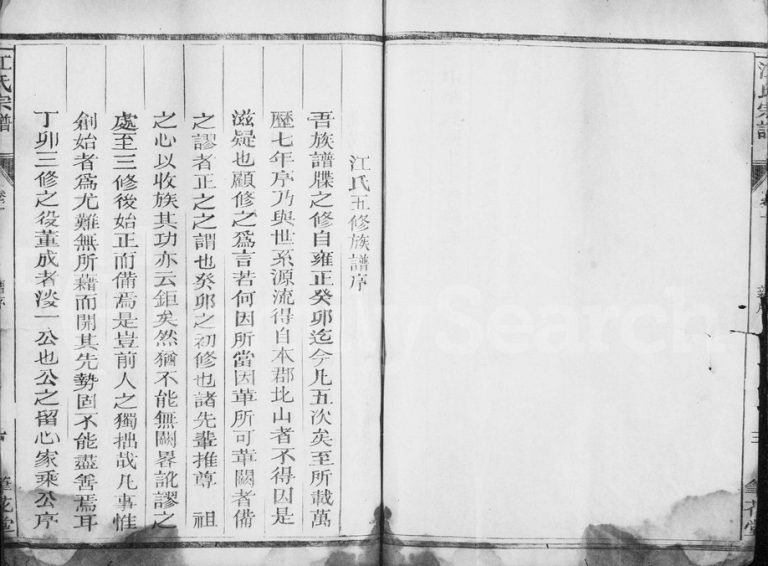 江氏宗譜
江氏五修族譜序
吾族譜牒之修自雍正癸卯迄今凡五次矣至所載萬
歷七年序乃與世系源流得自本郡北山者不得因是
滋疑也顧修之為言若何因所當因革所可革闕者備
之謬者正之之謂也癸卯之初修也諸先輩推尊 祖
之心以收族其功亦云鉅矣然猶不能無闕畧訛謬之
處至三修後始正而備焉是豈前人之獨拙哉凡事惟
創始者為尤難無所藉而開其先勢固不能盡善焉耳
丁卯三修之役董成者淡一公也公之留心家乘公序
江氏宗譜
卷一
譜序
筆花堂